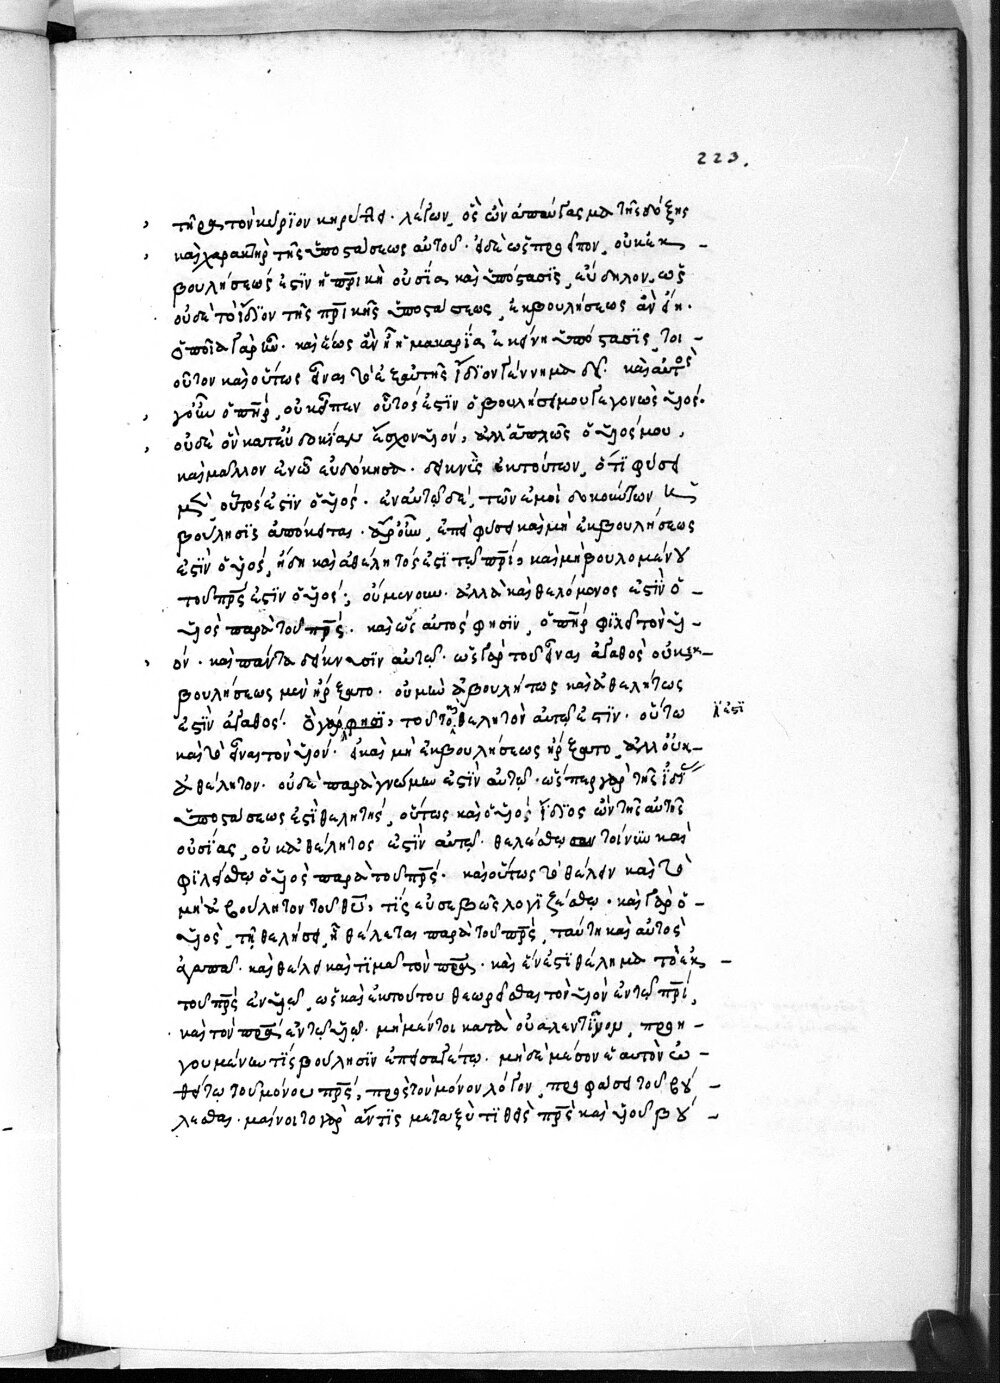 223.
τῆρα τὸν κύριον κηρύττει· λέγων, ὃς ὢν ἀπαύγασμα τῆς δόξης
καὶ χαρακτὴρ τῆς ὑποστάσεως αὐτοῦ. εἰ δὲ ὡς προεῖπον, οὐκ ἐκ
βουλήσεώς ἐστιν ἡ πρικὴ οὐσία καὶ ὑπόστασις, εὔδηλον, ὡς
οὐδὲ τὸ ἴδιον τῆς πρικῆς ὑποστάσεως, ἐκ βουλήσεως ἂν εἴη.
ὁποία γὰρ ἂν καὶ ἕως ἂν ᾖ ἡ μακαρία ἐκείνη ὑπόστασις, τοι
οῦτον καὶ οὕτως εἶναι τὸ ἐξ αὐτῆς ἴδιον γέννημα δεῖ. καὶ αὐτὸς
γοῦν ὁ πηρ, οὐκ εἶπεν οὗτός ἐστιν ὁ βουλήσει μου γεγονὼς υἱός.
οὐδὲ ὃν κατ' εὐδοκίαν ἔσχον υἱόν, ἀλλ' ἁπλῶς ὁ υἱός μου,
καὶ μᾶλλον ἐν ᾧ εὐδόκησα. δεικνὺς ἐκ τούτων, ὅτι φύσει
μὲν οὗτός ἐστιν ὁ υἱός. ἐν αὐτῷ δὲ, τῶν ἐμοὶ δοκούντων ἡ
βούλησις ἀπόκειται. ἆρ' οὖν, ἐπεὶ φύσει καὶ μὴ ἐκ βουλήσεως
ἐστὶν ὁ υἱός, ἤδη καὶ ἀθέλητός ἐστι τῷ πρι, καὶ μὴ βουλομένου
τοῦ πρς ἐστὶν ὁ υἱός; οὐμενοῦν. ἀλλὰ καὶ θελόμενος ἐστὶν ὁ
υἱὸς παρὰ τοῦ πρς. καὶ ὡς αὐτός φησιν, ὁ πηρ φιλεῖ τὸν υἱ
όν. καὶ πάντα δείκνυσιν αὐτῷ. ὡς γὰρ τοῦ εἶναι ἀγαθὸς οὐκ ἐκ
βουλήσεως μὲν ἤρξατο. οὐ μὴν ἀβουλήτως καὶ ἀθελήτως
ἐστὶν ἀγαθός. ὃ γάρ φησι, τοῦτο θελητὸν αὐτῷ ἐστιν. οὕτω
ἐστι
καὶ τὸ εἶναι τὸν υἱόν. εἰ καὶ μὴ ἐκ βουλήσεως ἤρξατο, ἀλλ' οὐκ
ἀθέλητον. οὐδὲ παρὰ γνώμην ἐστὶν αὐτῷ. ὥσπερ γὰρ τῆς ἰδί
ὑποστάσεως ἐστὶ θελητής, οὕτως καὶ ὁ υἱός ἴδιος ὢν τῆς αὐτῆς
οὐσίας, οὐκ ἀθέλητος ἐστὶν αὐτῷ. θελέσθω τοίνυν καὶ
φιλείσθω ὁ υἱὸς παρὰ τοῦ πρς. καὶ οὕτως τὸ θέλειν καὶ τὸ
μὴ ἀβούλητον τοῦ θυ, τὶς εὐσεβῶς λογιζέσθω. καὶ γὰρ ὁ
υἱὸς, τῇ θελήσει ᾗ θέλεται παρὰ τοῦ πρς, ταύτῃ καὶ αὐτὸς
ἀγαπᾷ καὶ θέλει καὶ τιμᾷ τὸν πρα. καὶ ἕν ἐστι θέλημα τὸ ἐκ
τοῦ πρς ἐν υἱῷ, ὡς καὶ ἐκ τούτου θεωρεῖσθαι τὸν υἱὸν ἐν τῷ πρι,
καὶ τὸν πρα ἐν τῷ υἱῷ. μὴ μέντοι κατὰ οὐαλεντῖνον, προη
γουμένην τὶς βούλησιν ἐπεισαγέτω. μηδὲ μέσον ἑαυτὸν ὠ
θείτω τοῦ μόνου πρς, πρὸς τὸν μόνον λόγον, προφάσει τοῦ βού
λεσθαι. μαίνοιτο γὰρ ἄν τις μεταξὺ τιθεὶς πρς καὶ υἱοῦ βού